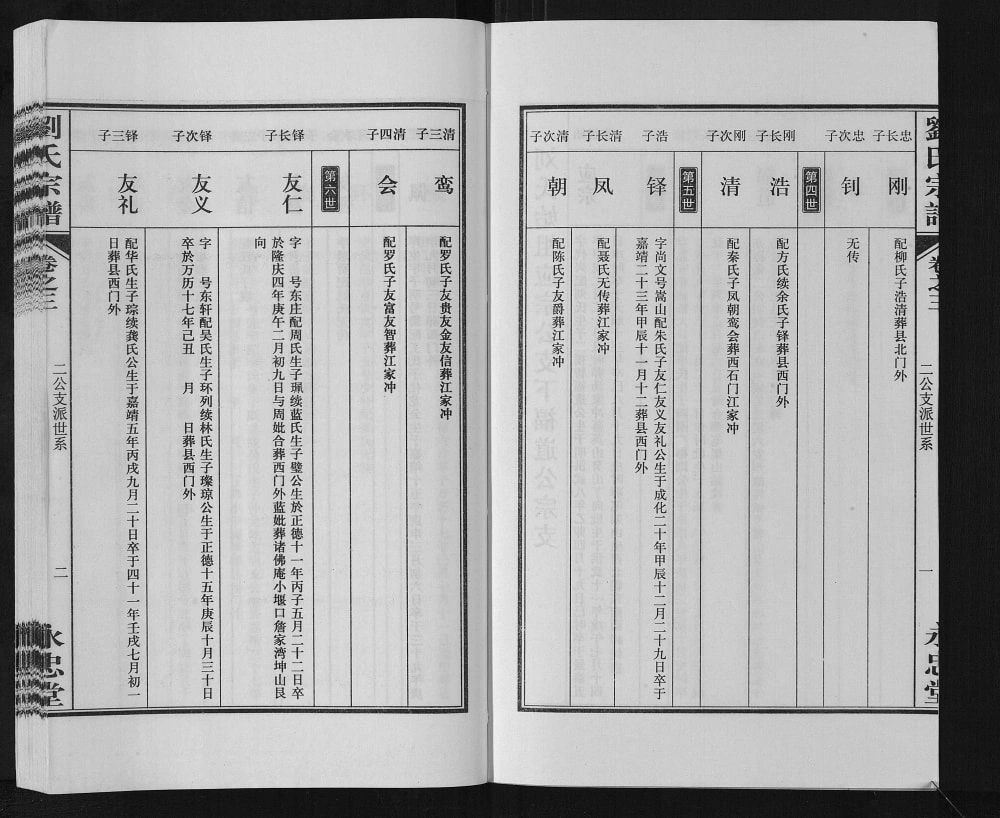 劉氏宗譜
卷之三
二公支派世系
一
永忠堂
忠长子
刚
配柳氏子浩清葬县北门外
忠次子
钊
无传
第四世
刚长子
浩
配方氏续余氏子铎葬县西门外
刚次子
清
配秦氏子凤朝鸾会葬西石门江家冲
第五世
浩子
铎
字尚文号嵩山配朱氏子友仁友义友礼公生于成化二十年甲辰十二月二十九日卒于
嘉靖二十三年甲辰十一月十二葬县西门外
清长子
凤
配聂氏无传葬江家冲
清次子
朝
配陈氏子友爵葬江家冲
清三子
鸾
配罗氏子友贵友金友信葬江家冲
清四子
会
配罗氏子友富友智葬江家冲
第六世
铎长子
友仁
字 号东庄配周氏生子珮续蓝氏生子璧公生於正德十一年丙子五月二十二日卒
於隆庆四年庚午二月初九日与周妣合葬西门外蓝妣葬诸佛庵小堰口詹家湾坤山艮
向
铎次子
友义
字 号东轩配吴氏生子环列续林氏生子璨琼公生于正德十五年庚辰十月三十日
卒於万历十七年己丑 月 日葬县西门外
铎三子
友礼
配华氏生子琮续龚氏公生于嘉靖五年丙戌九月二十日卒于四十一年壬戌七月初一
日葬县西门外
劉氏宗譜
卷之三
二公支派世系
二
永忠堂